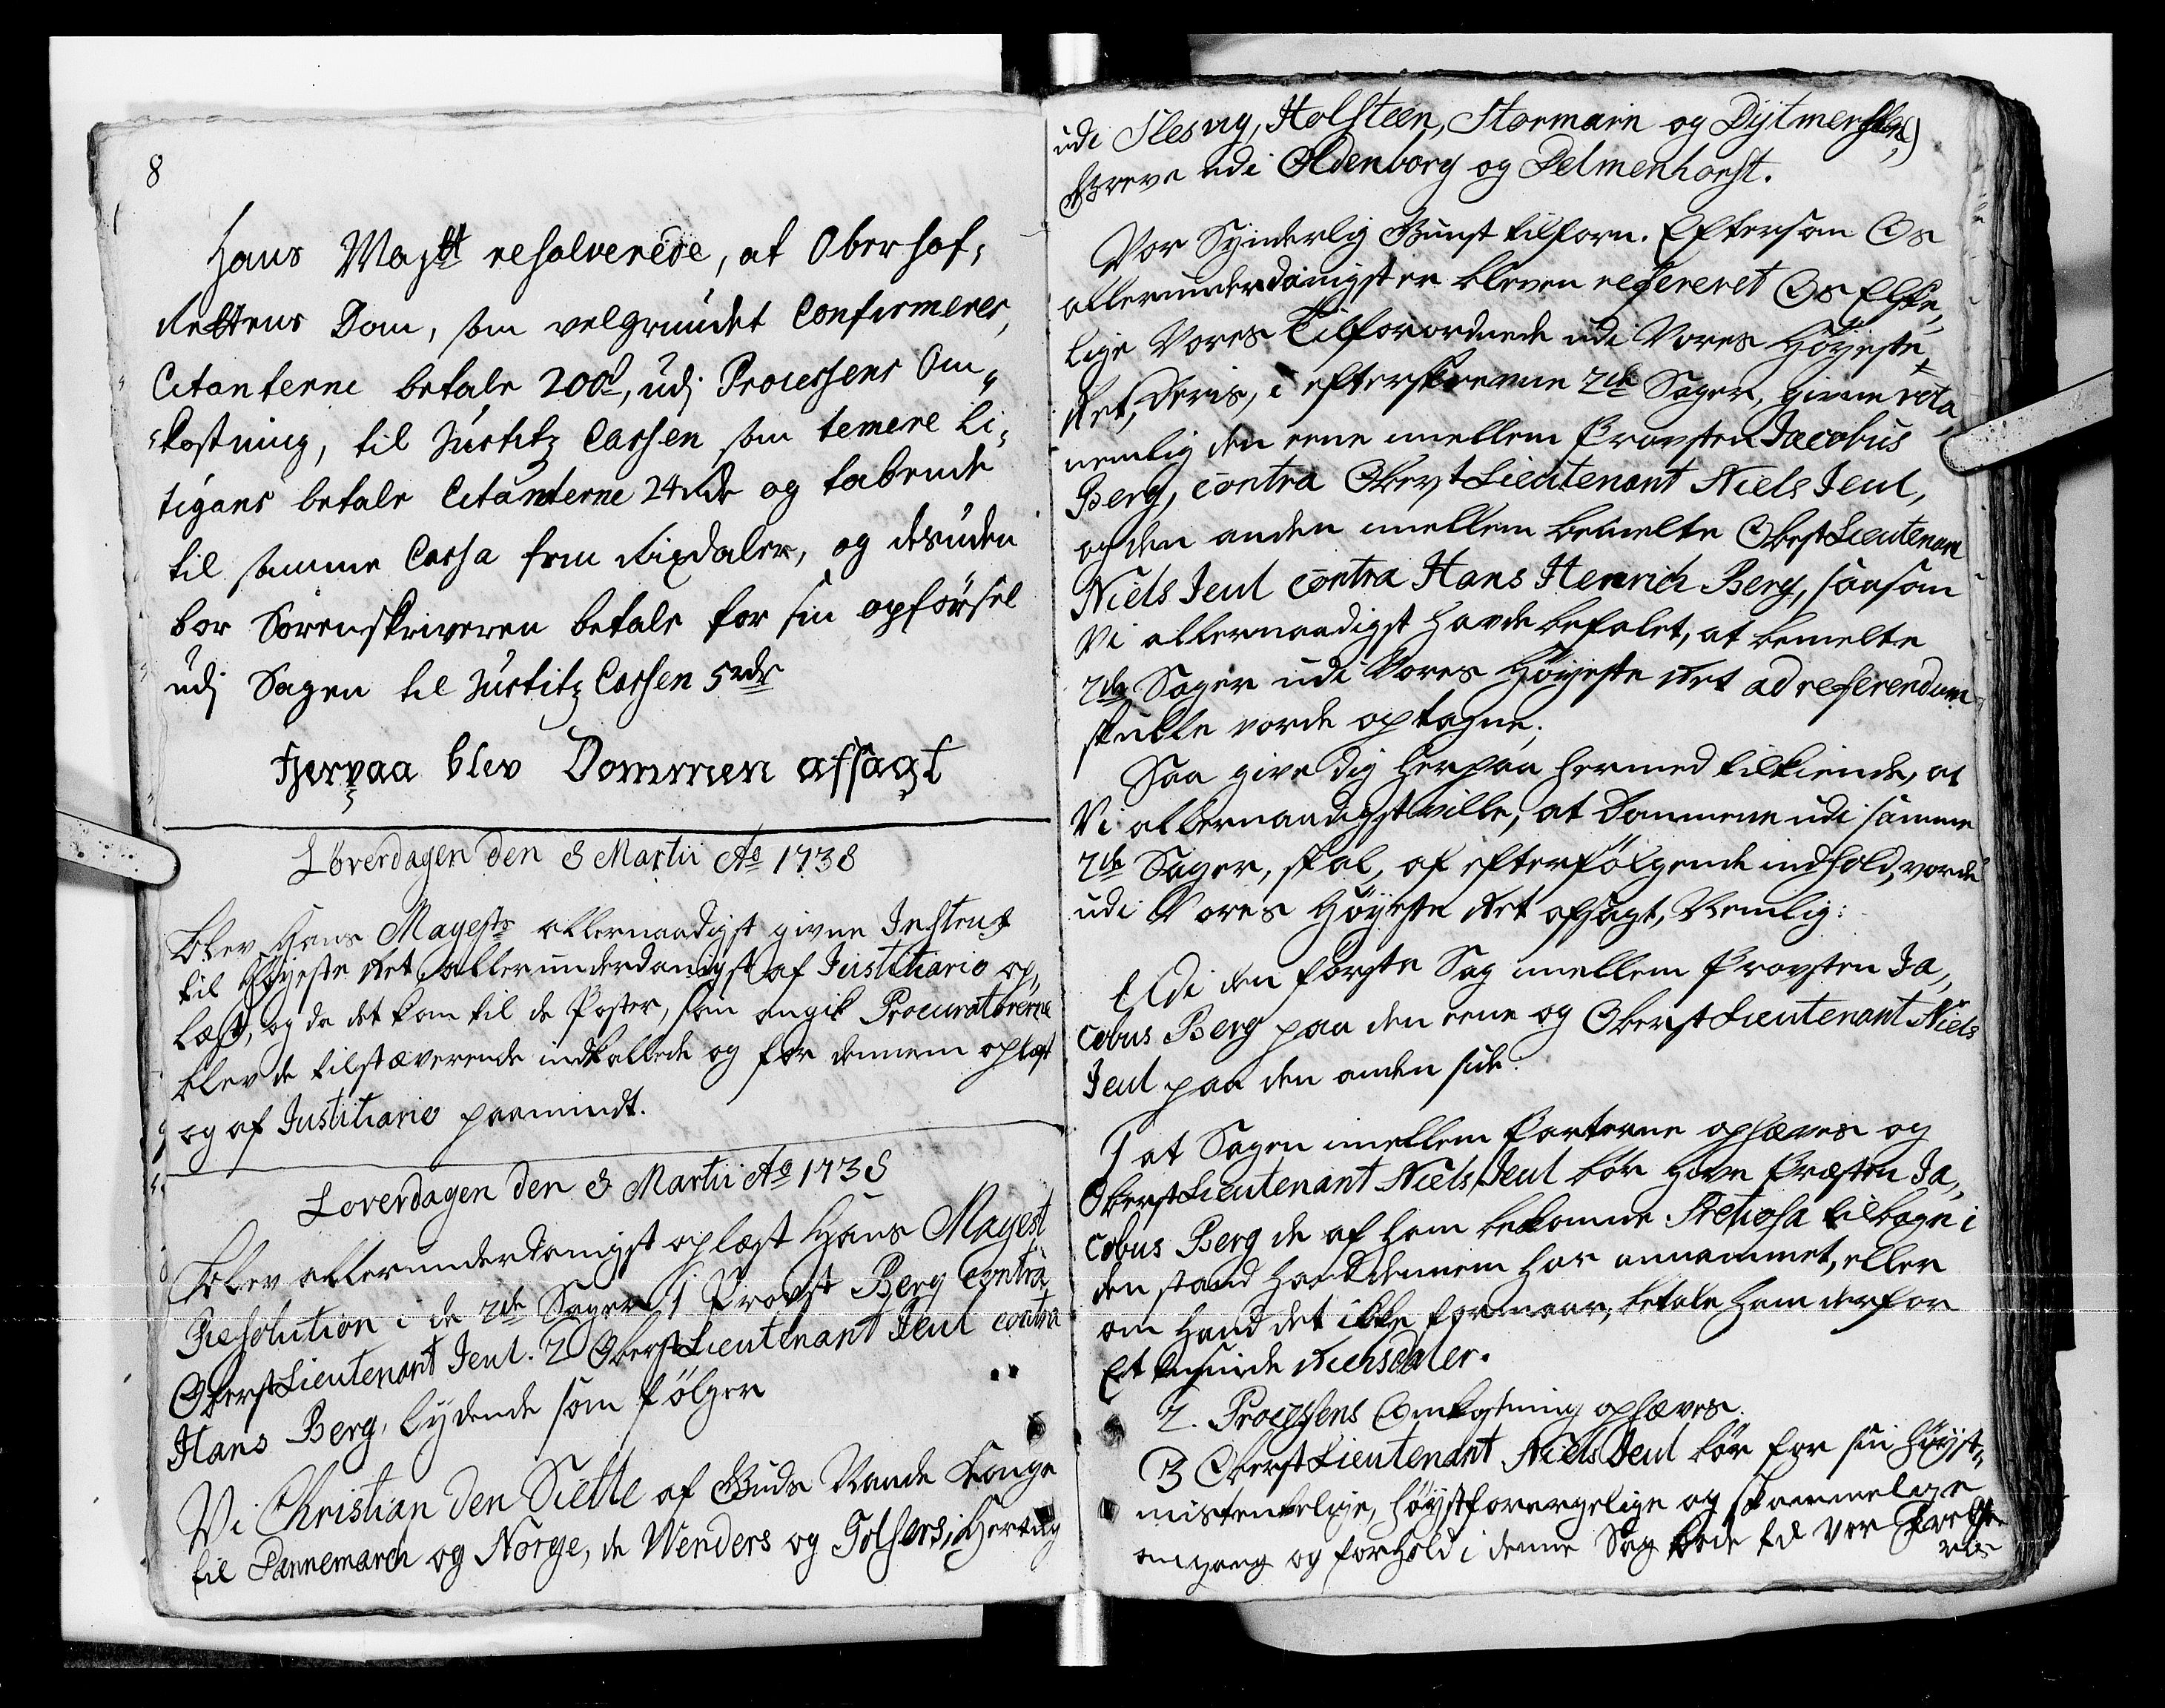 8
Hans Maytt resolverede, at Oberhof-
Rettens Dom, som velgrundet Confirmeres,
Citanterne betale 200d, udj Processens Om-
kostning, til Justitz Cassen som temere li-
tigans betale Citanterne 24 rdr og tabende
til samme Cassa fem Rixdaler, og desuden
bør Sorenskriveren betale for sin opførsel
udj Sagen til Justitz Cassen 5 rdr
Herpaa blev Dommen afsagt
Løverdagen den 8 Martii Ao 1738
Blev Hans Mayests allernaadigst givne Instrux
til Høyeste Ret allerunderdanigst af Justitiario op-
læst, og da det kom til de Poster, som angik Procuratorerne
blev de tilstæverende indkallede og for dennem oplæst
og af Justitiario paamindt.
Løverdagen den 8 Martii Ao 1738
Blev allerunderdanigst oplæst Hans Mayest
Resolution i de 2de Sager 1 Provst Berg contra
OberstLieutenant Jeul. 2 OberstLieutenant Jeul contra
Hans Berg, lydende som følger
Vi Christian den Siette af Guds Naade Konge
til Dannemarch og Norge, de Wenders og Gothers, Hertug
udi Slesvig, Holsteen, Stormarn og Dytmersken,
Greve udi Oldenborg og Delmenhorst.
Vor Synderlig Gunst tilforn. Eftersom Os
allerunderdanigst er bleven refereret Os Elske-
lige Vores Tilforordnede udi Vores Høyeste-
Ret, Deris, i efterskrevne 2de Sager, givne vota,
nemlig den eene imellem Provsten Jacobus
Berg, contra OberstLieutenant Niels Jeul,
og den anden imellem bemelte OberstLieutenant
Niels Jeul contra Hans Henrich Berg, saasom
Vi allernaadigst havde befalet, at bemelte
2de Sager udi Vores Høyeste Ret ad referendum
skulle vorde optagne;
Saa give dig herpaa hermed tilkiende, at
Vi allernaadigst ville, at Dommene udi samme
2de Sager, skal, af efterfølgende indhold, vorde
udi Vores Høyeste Ret afsagt, Nemlig:
Udi den første Sag imellem Provsten Ja-
cobus Berg paa den eene og OberstLieutenant Niels
Jeul paa den anden side.
1 at Sagen imellem Parterne ophæves og
OberstLieutenant Niels Jeul bør give Præsten Ja-
cobus Berg de af ham bekomne Pretiosa tilbage i
den stand hand dennem har annammet, eller
om hand det ikke formaar, betale ham derfor
Et tusinde Richsdaler.
2. Processens Omkostning ophæves.
3 OberstLieutenant Niels Jeul bør for sin høyst-
mistenkelige, høystforargelige og skammelige
omgang og forhold i denne Sag bøde til Vor Frelse